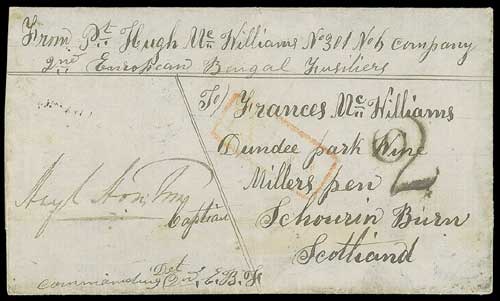 From Pt Hugh Mc Williams No 301 No 6 Company
2nd European Bengal Fusiliers
To Frances Mc Williams
Dundee park Wine
Millers pen
Schourin Burn
Scotland
2
Captain
Commanding Det 2nd E.B.F